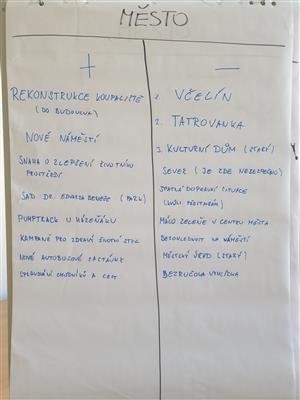 MĚSTO
+
REKONSTRUKCE KOUPALIŠTĚ
(DO BUDOUCNA)
NOVÉ NÁMĚSTÍ
SNAHA O ZLEPŠENÍ ŽIVOTNÍHO
PROSTŘEDÍ
SAD DR. EDVARDA BENEŠE (PARK)
PUMPTRACK U HÁZENÁKU
KAMPANĚ PRO ZDRAVÍ ŽIVOTNÍ STYL
NOVÉ AUTOBUSOVÉ ZASTÁVKY
CHODNÍKŮ A CEST
-
1. VČELÍN
2. TATROVANKA
3. KULTURNÍ DŮM (STARÝ)
SEVER (JE ZDE NEBEZPEČNO)
ŠPATNÁ DOPRAVNÍ SITUACE
(KVŮLI)
MÁLO ZELENĚ V CENTRU MĚSTA
BEZOHLEDNOST NA NÁMĚSTÍ
MĚSTSKÝ ÚŘAD (STARÝ)
BEZRUČOVA VYHLÍDKA